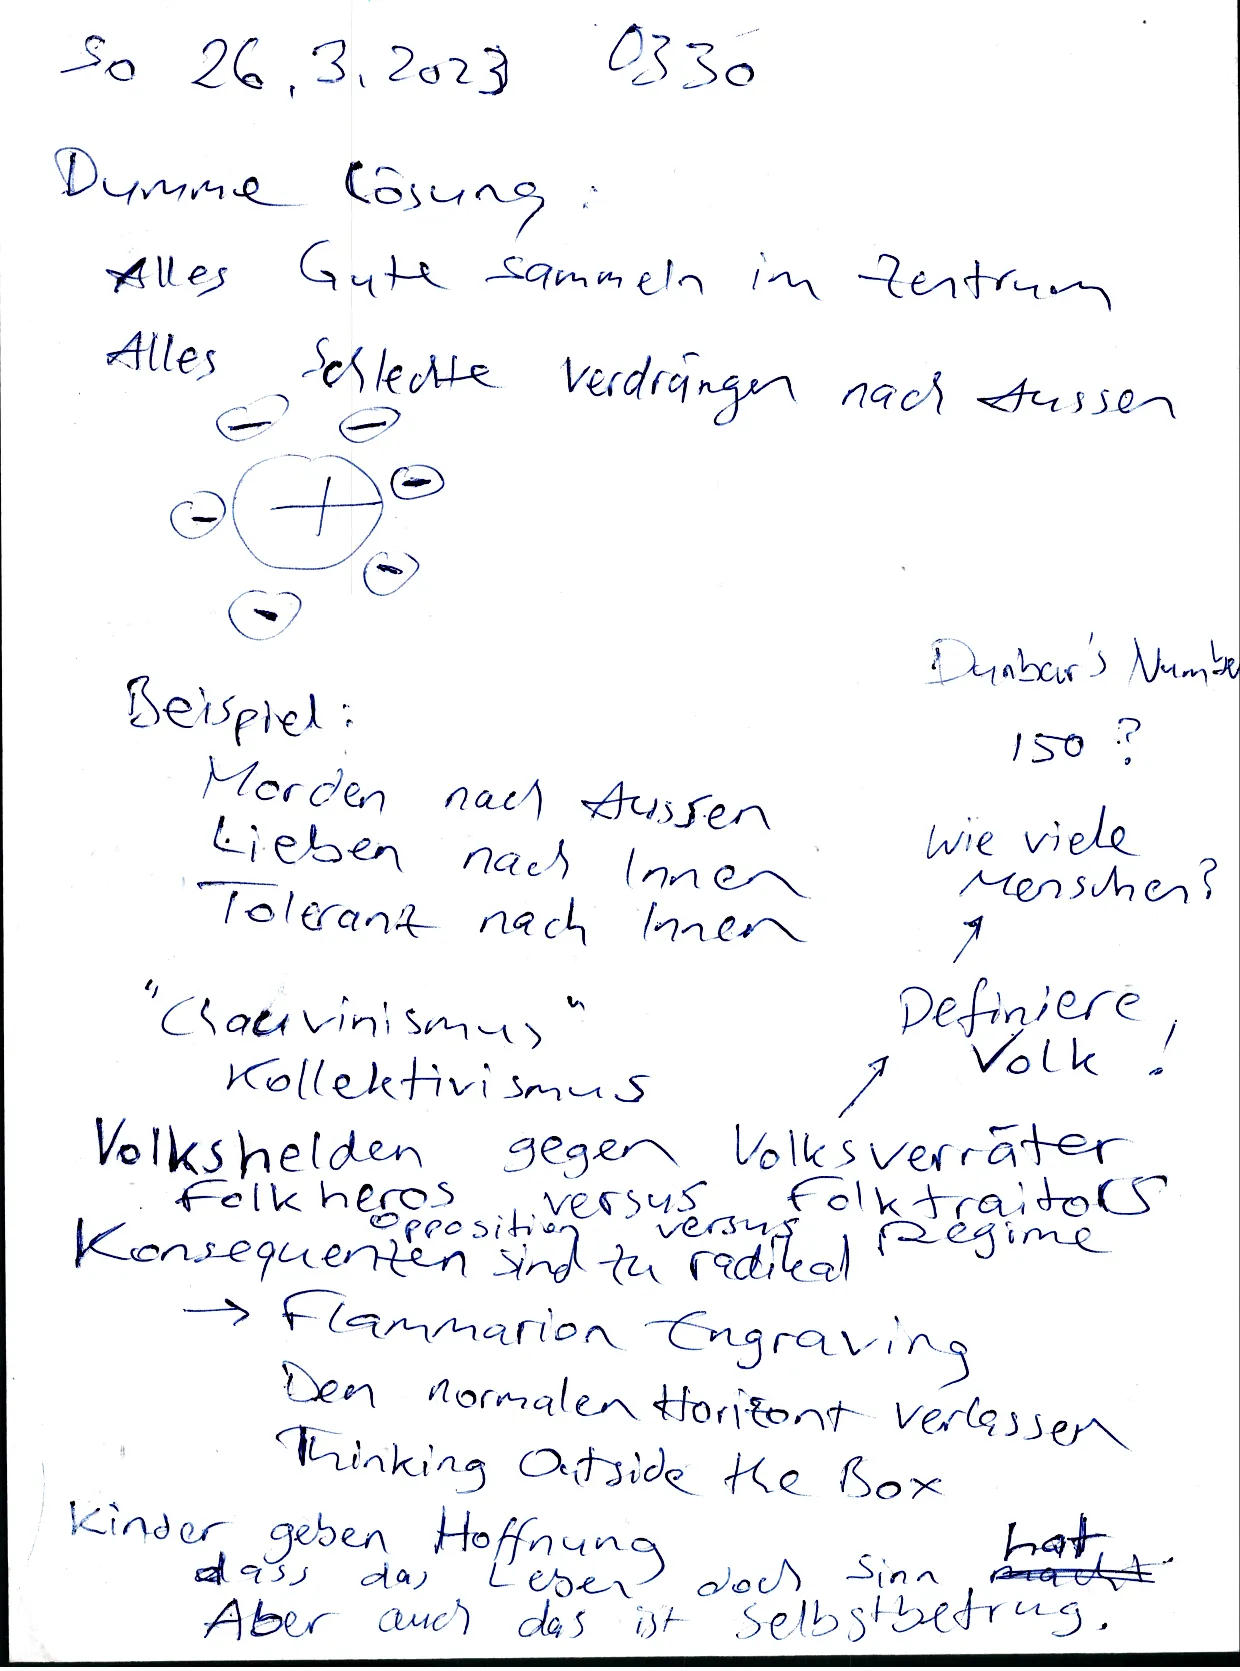 So 26.3.2023 0330
Dumme Lösung:
Alles Gute sammeln im Zentrum
Alles Schlechte verdrängen nach Aussen
- -
- + -
-
-
Dunbar's Numbe
150 ?
Wie viele
Menschen?
Definiere
Volk !
Beispiel:
Morden nach Aussen
Lieben nach Innen
Toleranz nach Innen
"Chauvinismus"
Kollektivismus
Volkshelden gegen Volksverräter
Folkheros versus Folktraitors
Opposition versus Regime
Konsequenzen sind zu radikal
→ Flammarion Engraving
Den normalen Horizont verlassen
Thinking Outside the Box
Kinder geben Hoffnung
dass das Leben doch Sinn macht hat.
Aber auch das ist Selbstbetrug.